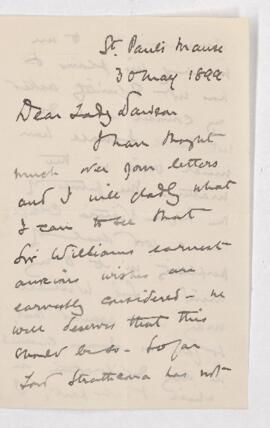 St. Paul's Manse
30 May 1899
Dear Lady Dawson
I have thought
much over your letters
and I will gladly what
I can to see that
Sir Williams earnest
anxious wishes are
earnestly considered - he
well deserves that this
should be so. So far
Lord Strathcona has not